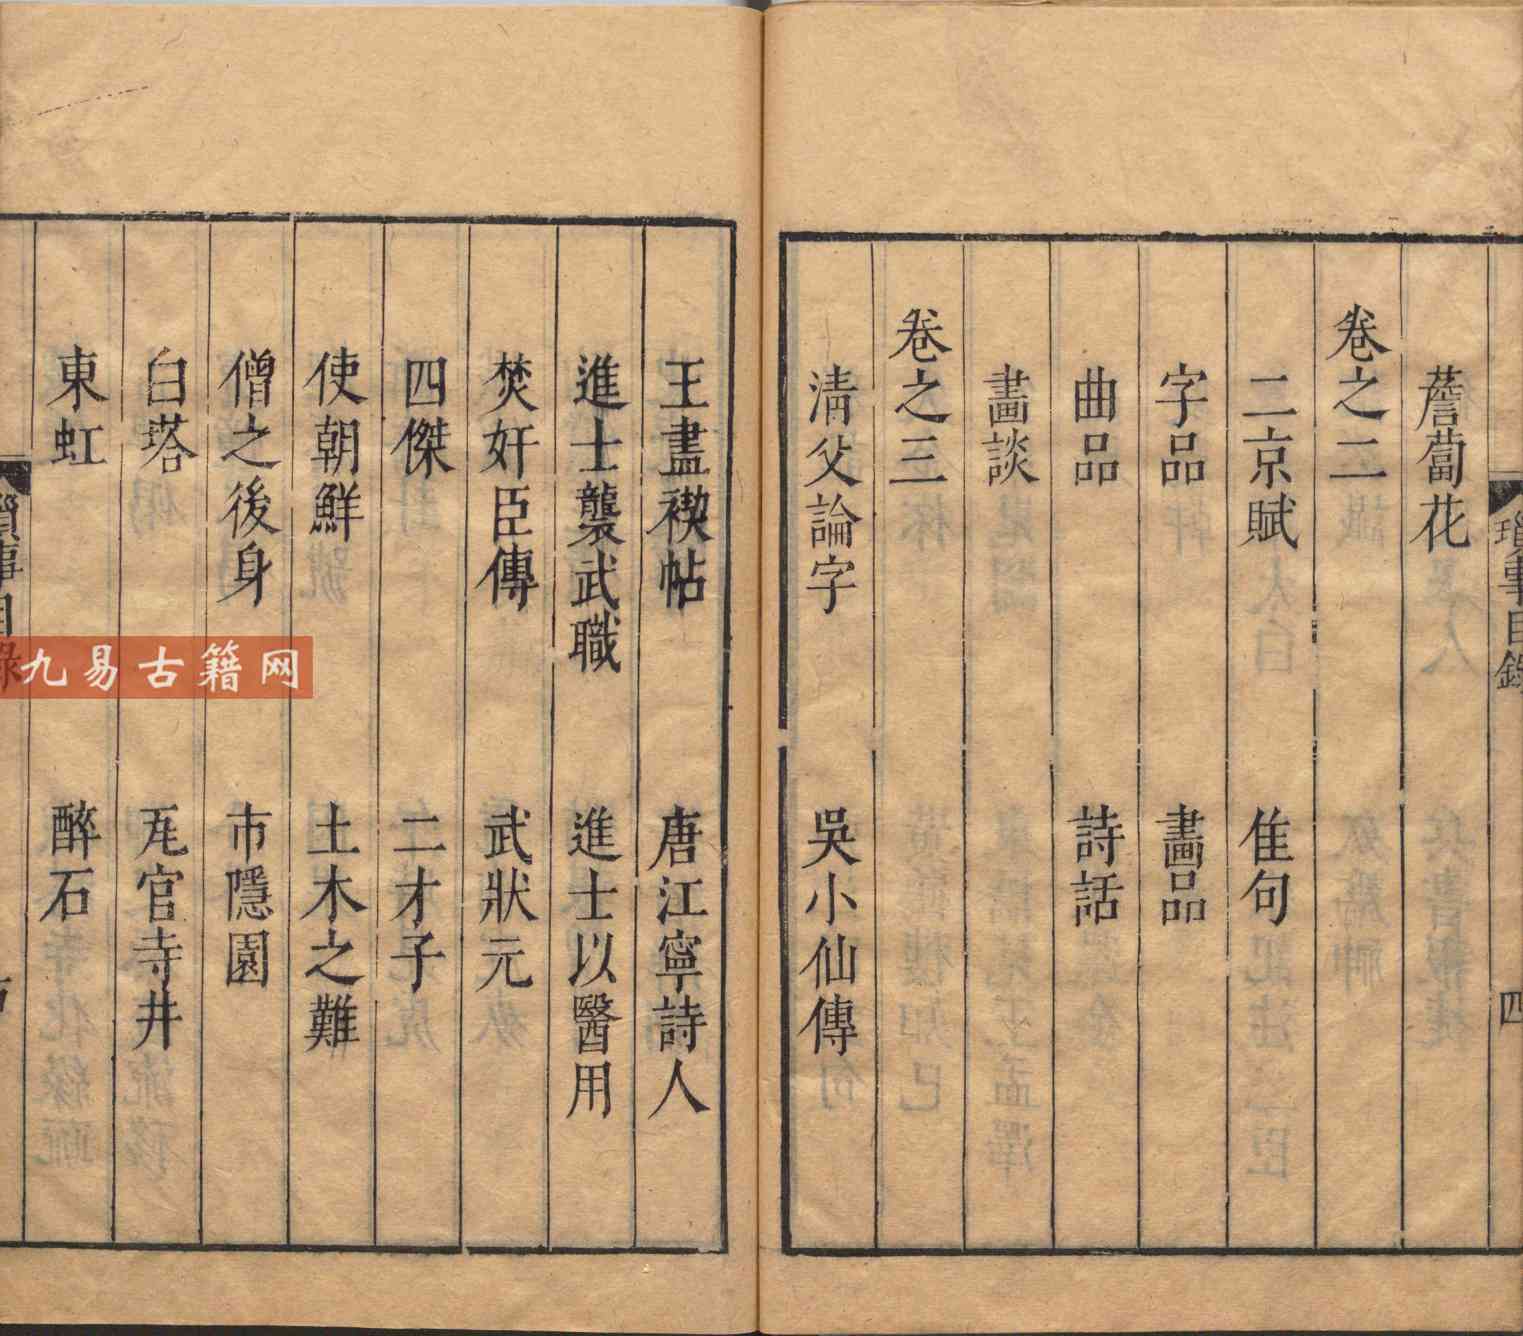 瑣事目錄 四
薝蔔花
卷之二
二京賦 佳句
字品 畫品
曲品 詩話
畫談
卷之三
清父論字 吳小仙傳
王盡稧帖 唐江寧詩人
進士襲武職 進士以醫用
焚奸臣傳 武狀元
四傑 二才子
使朝鮮 土木之難
僧之後身 市隱園
白塔 瓦官寺井
東虹 醉石
瑣事目錄
九易古籍网